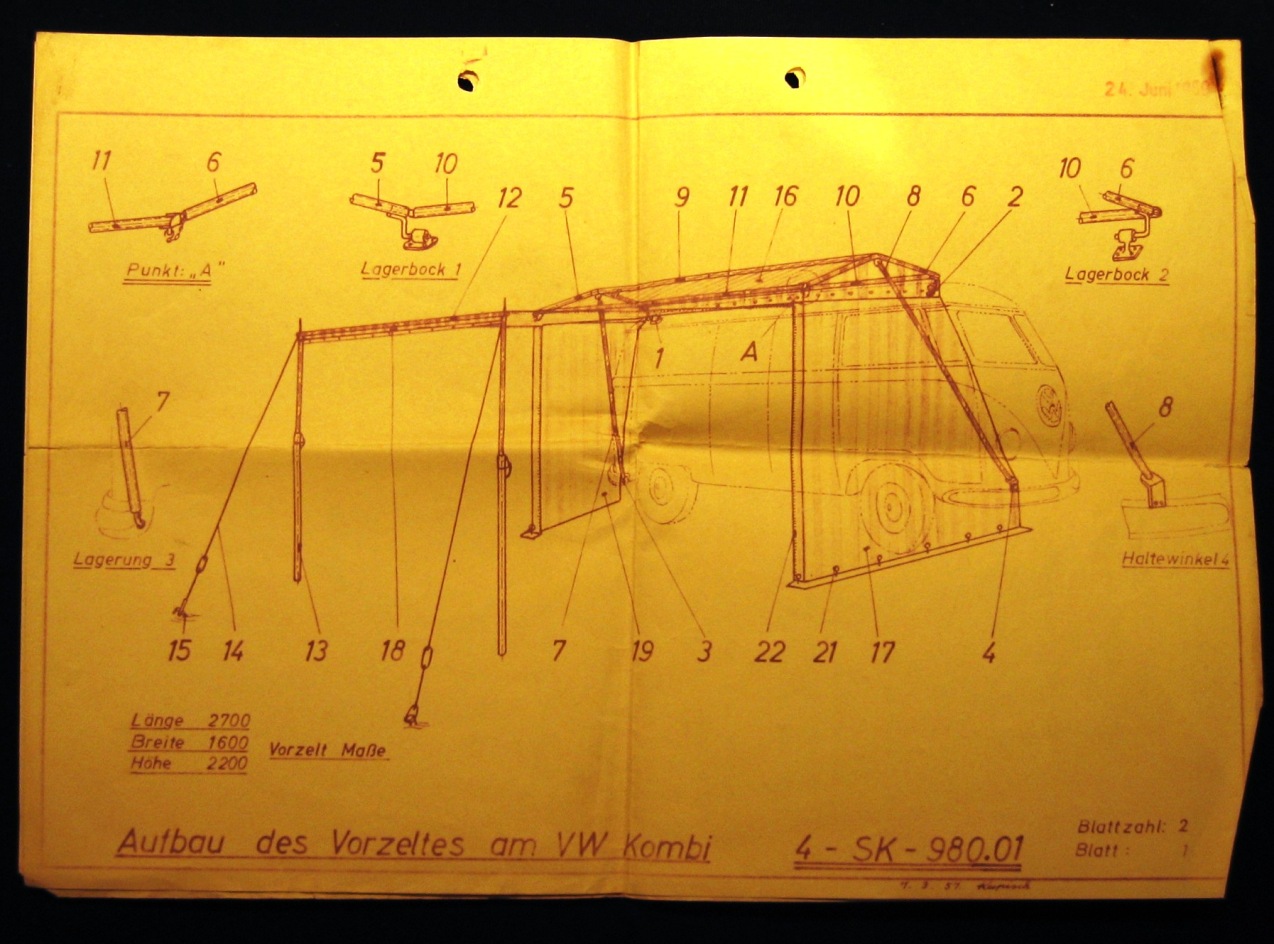 24. Juni
11 6
5 10
12 5 9 11 16 10 8 6 2
10 6
Punkt: „A"
Lagerbock 1
Lagerbock 2
1 A
7
8
Lagerung 3
Haltewinkel 4
15 14 13 18 7 19 3 22 21 17 4
Länge 2700
Breite 1600
Höhe 2200
Vorzelt Maße
Aufbau des Vorzeltes am VW Kombi
4 - SK - 980.01
Blattzahl: 2
Blatt: 1